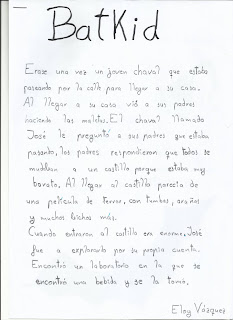 BatKid
Erase una vez un joven chaval que estaba
paseando por la calle para llegar a su casa.
Al llegar a su casa vió a sus padres
haciendo las maletas. El chaval llamado
José le preguntó a sus padres que estaba
pasando, los padres respondieron que todos se
mudaban a un castillo porque estaba muy
barato. Al llegar al castillo parecía de
una película de terror, con tumbas, arañas
y muchos bichos más.
Cuando entraron al castillo era enorme, José
fue a explorarlo por su propia cuenta.
Encontró un laboratorio en la que se
encontró una bebida y se la tomó,
Eloy Vázquez